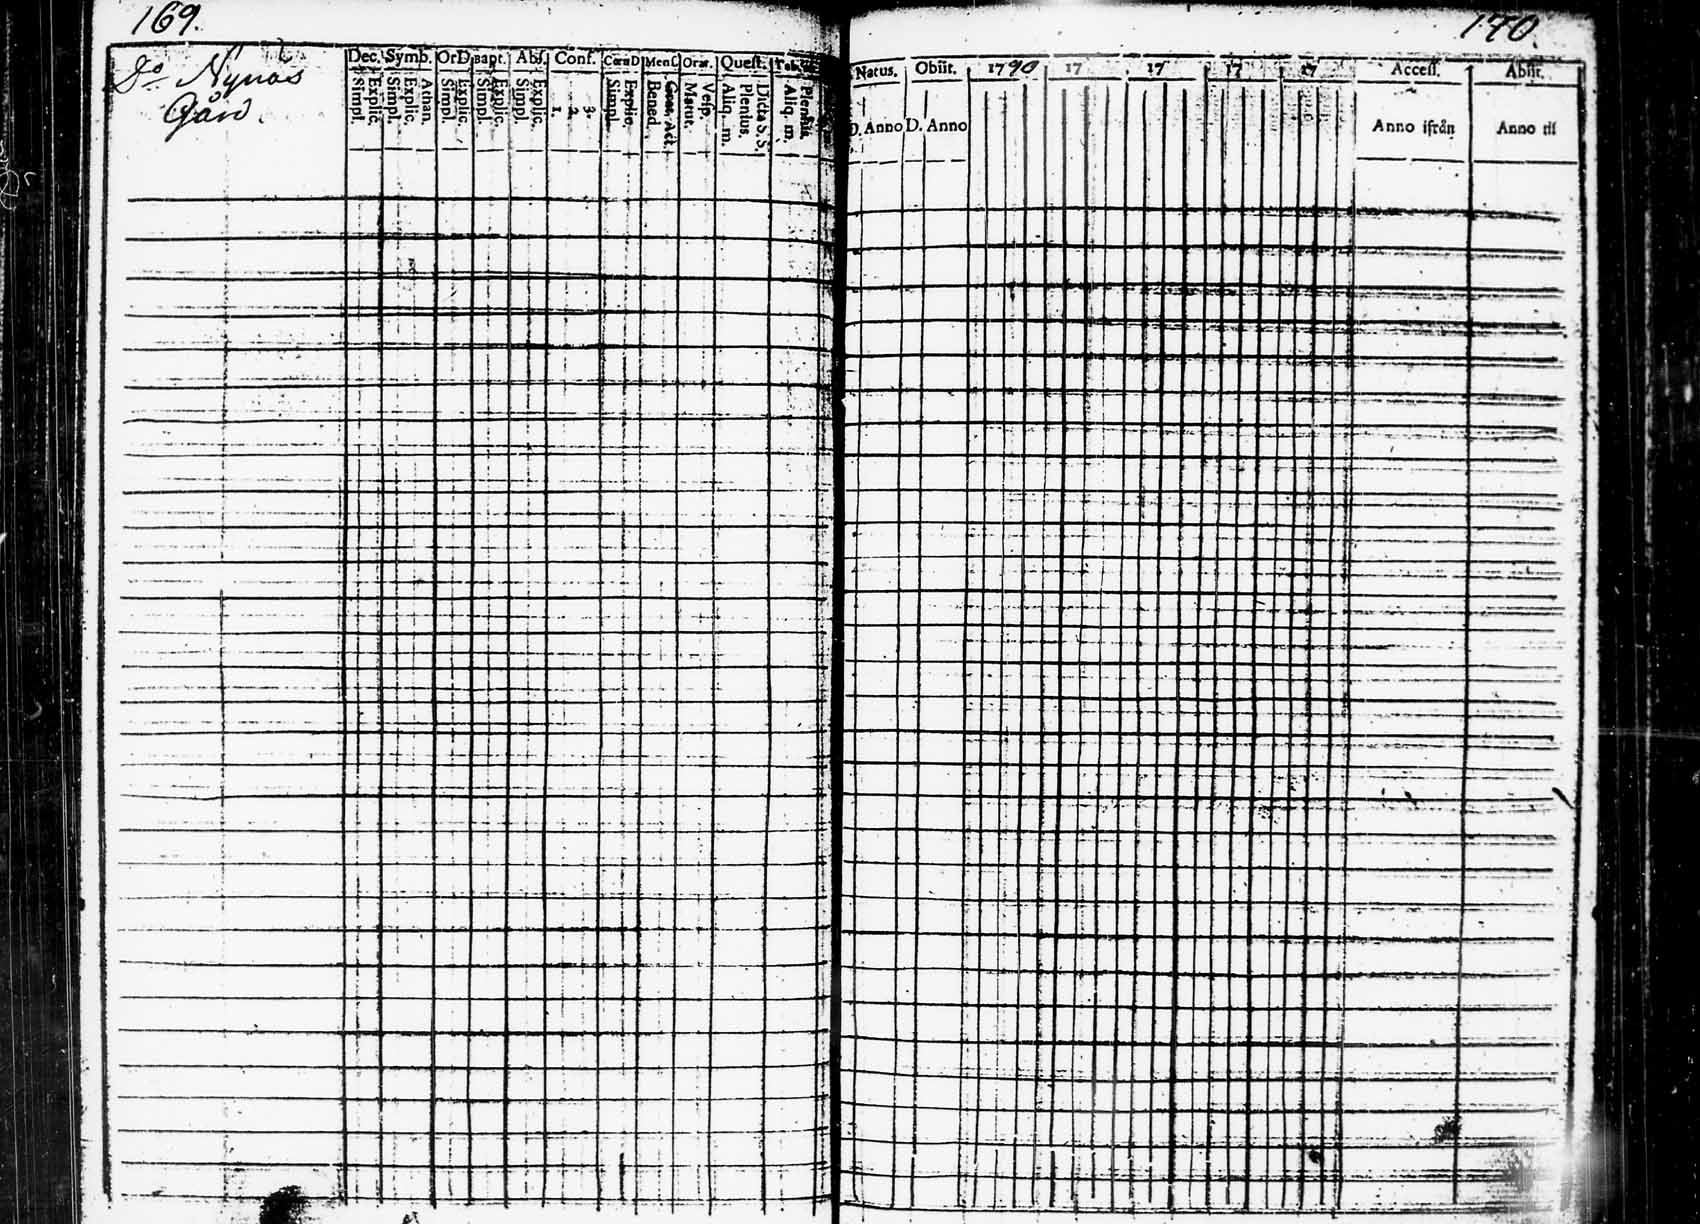 169.
Do. Nynäs
Gård.
Dec. Symb. Or.D. Bapt. Abs. Conf. Cœn.D Men C. Orat. Quest. Tab.
Simpl. Explic. Simpl. Explic. Athan. Simpl. Explic. Simpl. Explic. Simpl. Explic. 1. 2. 3. Simpl. Explic. Bened. Grat. Act. Matut. Vesp. Aliq. m. Plenius. Dicta S.S. Aliq. m.
170.
Natus. Obiit. 1790 17 17 17 17 Access. Abiit.
D. Anno D. Anno Anno ifrån Anno til